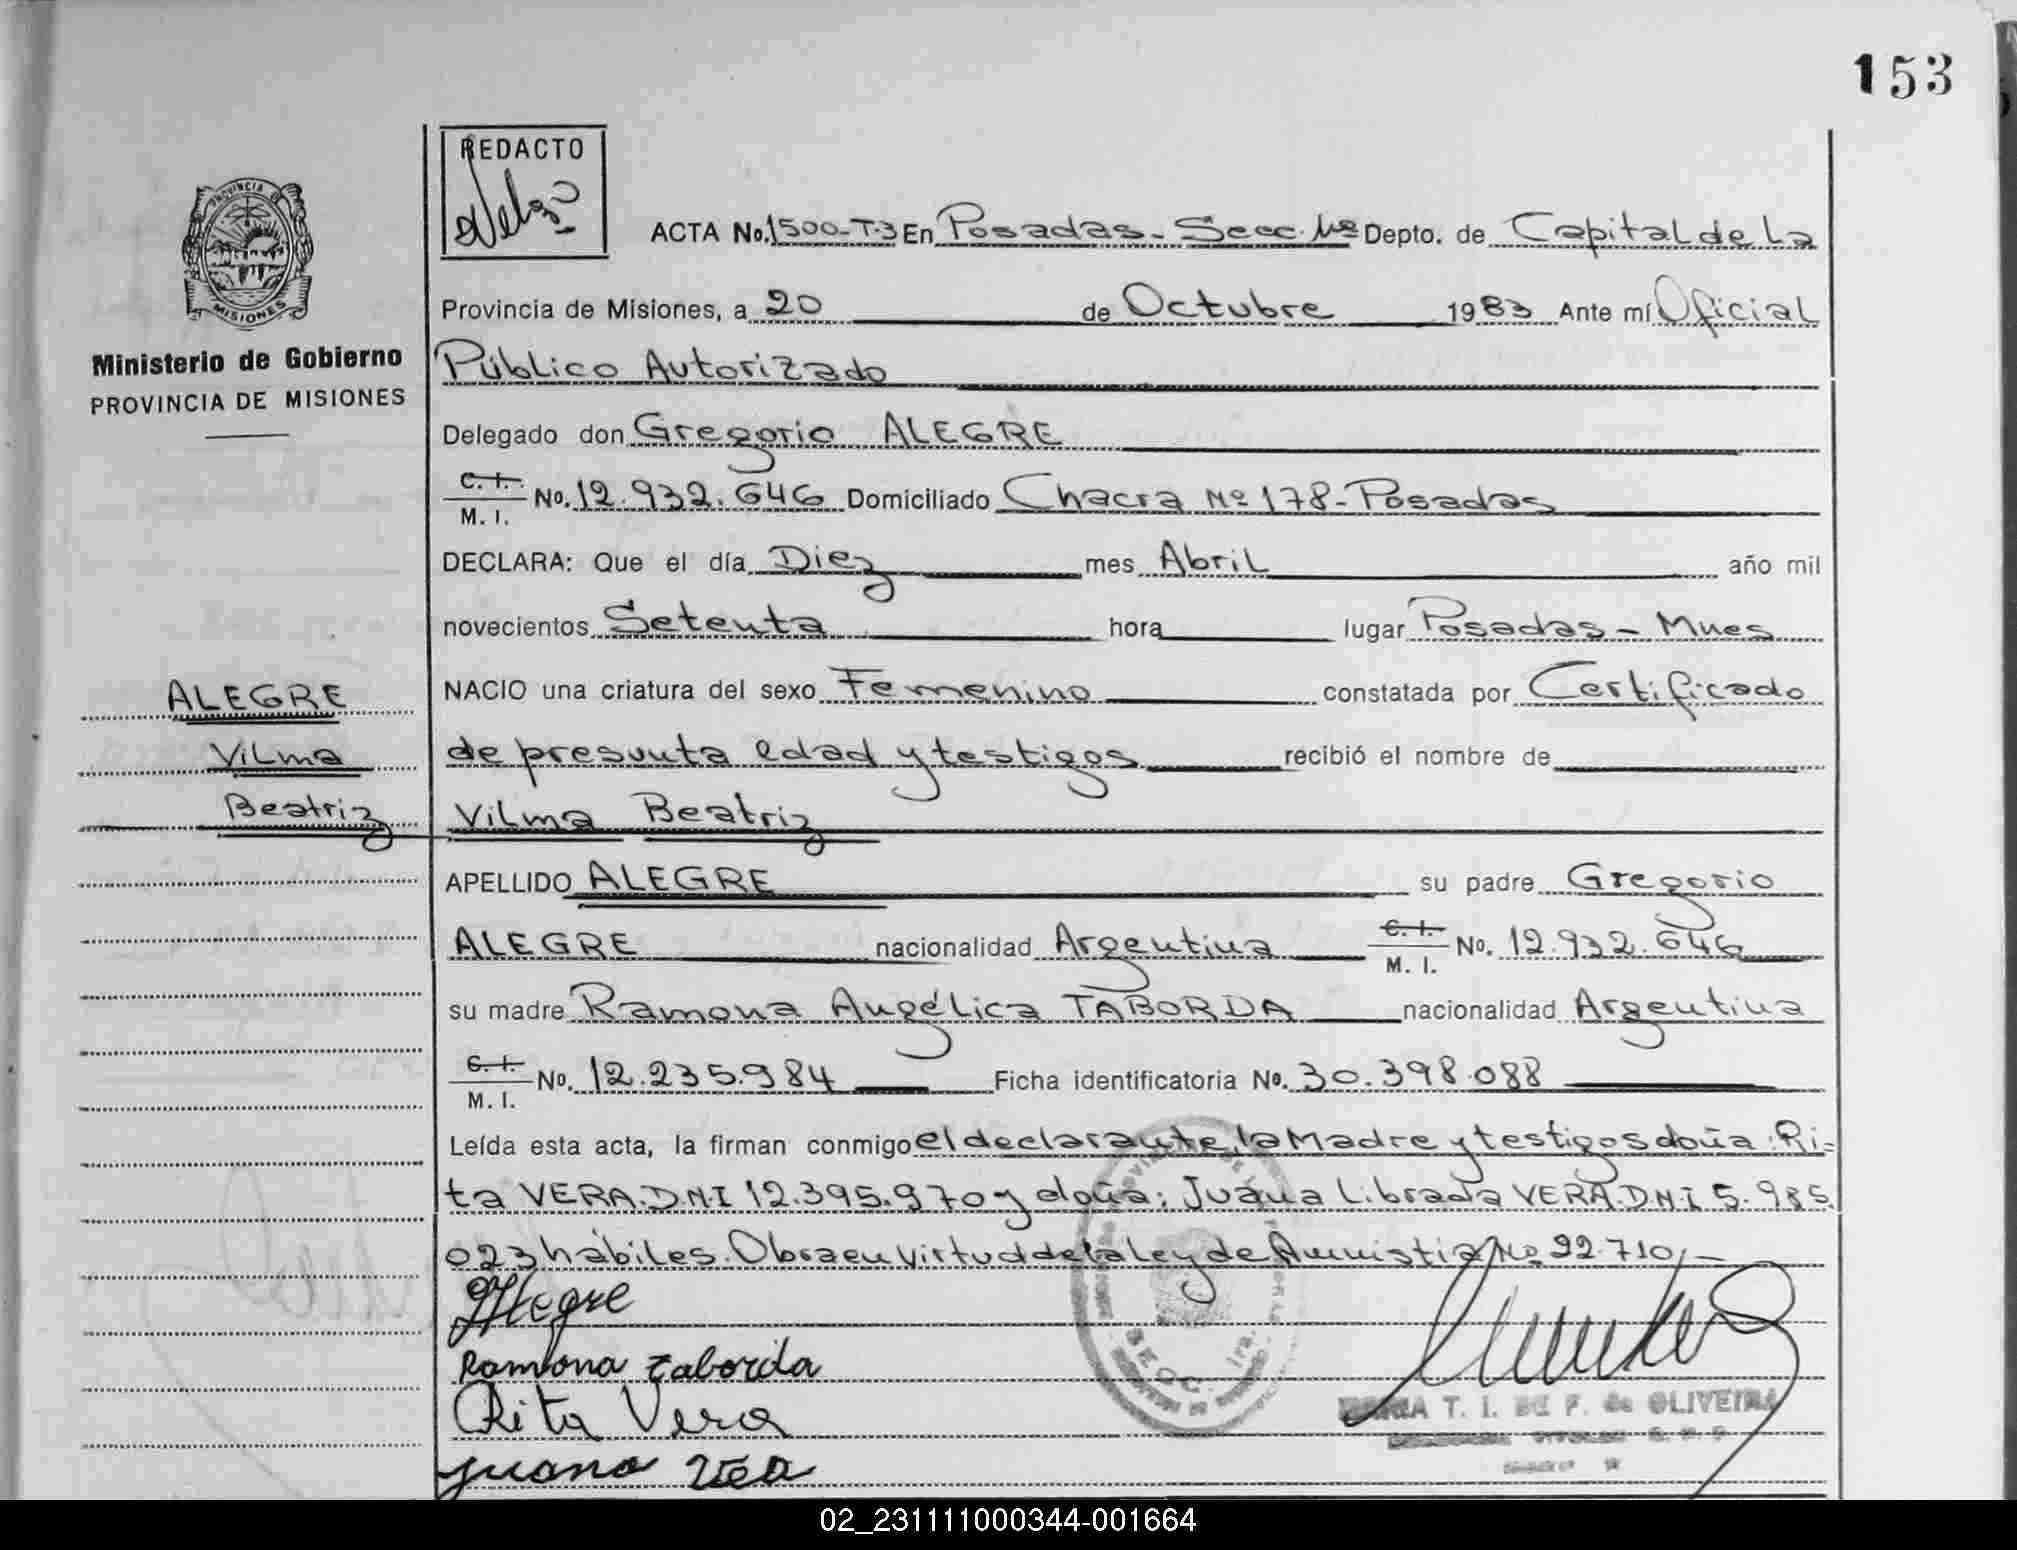 153
REDACTO
ACTA No. 1500-T.3 En Posadas - Secc. 1ª Depto. de Capital de La
Provincia de Misiones, a 20 de Octubre 1983 Ante mí Oficial
Público Autorizado
Delegado don Gregorio ALEGRE
C. I. M. I. No. 12.932.646 Domiciliado Chacra Nº 178-Posadas
DECLARA: Que el día Diez mes Abril año mil
novecientos Setenta hora lugar Posadas - Mnes
NACIO una criatura del sexo Femenino constatada por Certificado
de presunta edad y testigos recibió el nombre de
Vilma Beatriz
APELLIDO ALEGRE su padre Gregorio
ALEGRE nacionalidad Argentina C. I. M. I. No. 12.932.646
su madre Ramona Angélica TABORDA nacionalidad Argentina
C. I. M. I. No. 12.235.984 Ficha identificatoria No. 30.398.088
Leída esta acta, la firman conmigo el declarante, la Madre y testigos doña: Ri=
ta VERA.D.N.I 12.395.970 y doña: Juana Librada VERA.D.N.I 5.985.
023 hábiles. Obra en virtud de la ley de Amnistía Nº 22.710.-
Alegre
Ramona taborda
Rita Vera
juana
SECC. 1ra.
MARIA T. I. DE F. de OLIVEIRA
PROVINCIA DE
MISIONES
Ministerio de Gobierno
PROVINCIA DE MISIONES
ALEGRE
Vilma
Beatriz
02_231111000344-001664